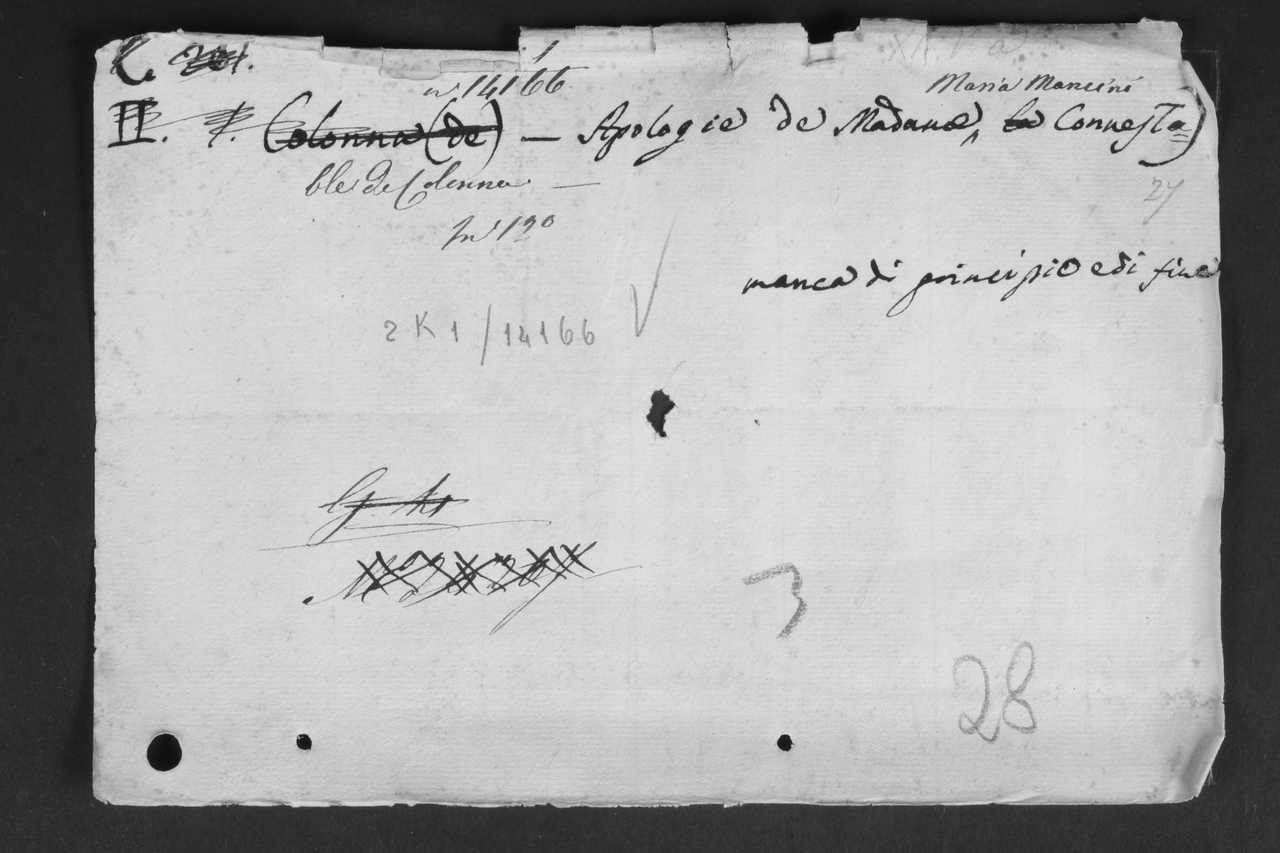 n.° 14166
Maria Mancini
II. Colonna (de) — Apologie de Madame, la Connesta
ble de Colonna —
In 12°
27
manca di principio e di fine
2 K 1 / 14166
3
28